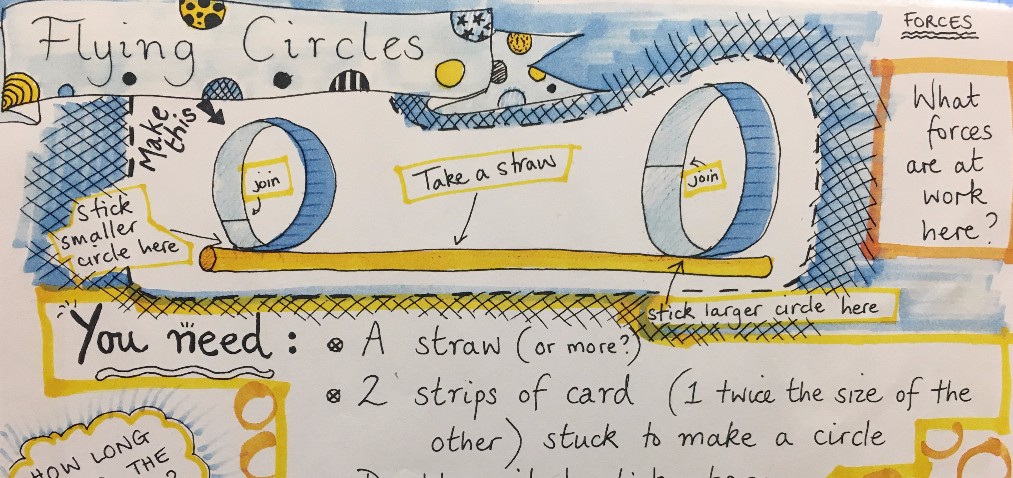 Flying Circles
FORCES
Make
this
join
Take a straw
join
Stick
smaller
circle here
stick larger circle here
What
forces
are at
work
here?
You need:
A straw (or more?)
2 strips of card (1 twice the size of the
other) stuck to make a circle
HOW LONG
THE